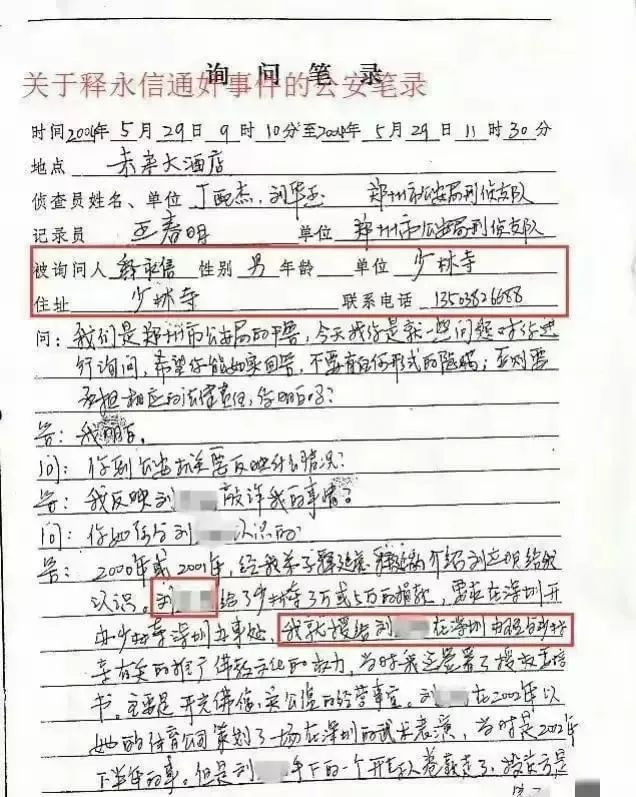 询问笔录
关于释永信通奸事件的公安笔录
时间2004年5月29日9时10分至2004年5月29日11时30分
地点 未来大酒店
侦查员姓名、单位 丁 杰、刘华 郑州市公安局刑侦支队
记录员 王春明 单位 郑州市公安局刑侦支队
被询问人 释永信 性别 男 年龄 单位 少林寺
住址 少林寺 联系电话 13503826688
问:我们是郑州市公安局的干警,今天我们是就一些问题对你进
行询问,希望你能如实回答,不要有任何形式的隐瞒;否则要
承担相应的法律责任,你明白吗?
答:我明白。
问:你到公安机关要反映什么情况?
答:我反映刘 敲诈我的事情?
问:你如何与刘 认识的
答:2000年或2001年,经我弟子释延 介绍刘 给我
认识。刘 给了少林寺3万或5万的捐款,要在深圳开
办少林寺深圳办事处,我就授给刘 在深圳 与少林
寺有关的推广佛教文化的权力,当时我还签署了授权委托
书。主要是开光佛像、实公 的经营事宜。刘 在2002年以
她的体育公司策划了一场在深圳的武术表演,当时是2002年
下半年的事。但是刘 手下的一个 人卷款走了,投资方是